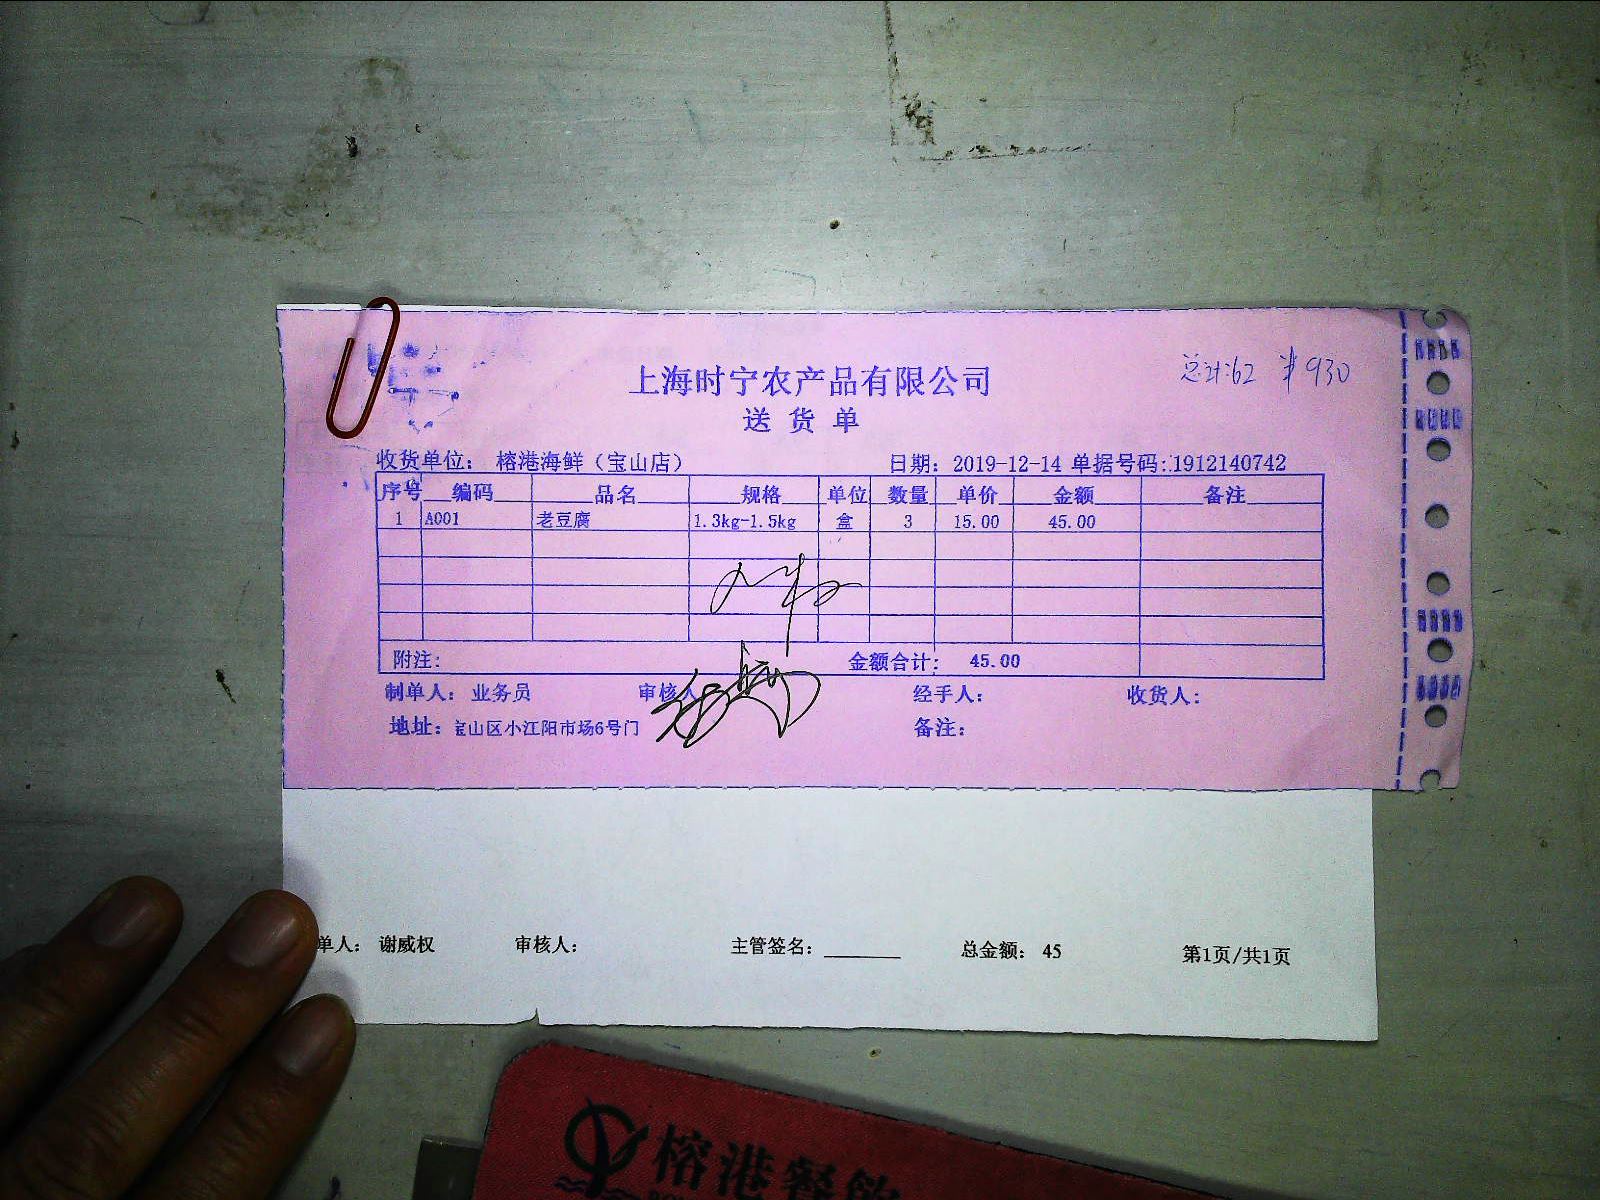 总计:62 ¥930
上海时宁农产品有限公司
送货单
收货单位: 榕港海鲜(宝山店) 日期: 2019-12-14 单据号码:1912140742
序号 编码 品名 规格 单位 数量 单价 金额 备注
1 A001 老豆腐 1.3kg-1.5kg 盒 3 15.00 45.00
附注: 金额合计: 45.00
制单人: 业务员 审核人 经手人: 收货人:
地址: 宝山区小江阳市场6号门 备注:
单人: 谢威权 审核人: 主管签名: 总金额: 45 第1页/共1页
榕港餐飲